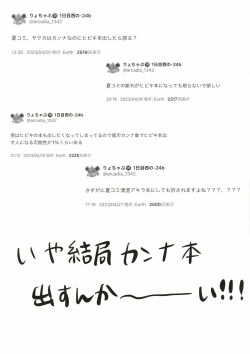 りょちゃぷ 1日目西の-24b
@arcadia_1342
夏コミ、サクカはカンナなのにヒビキ本出したら怒る?
13:28 · 2023/04/20 場所: Earth · 2519回表示
りょちゃぷ 1日目西の-24b
@arcadia_1342
夏コミの新刊がヒビキ本になっても怒らないで欲しい
20:16 · 2023/04/18 場所: Earth · 2317回表示
りょちゃぷ 1日目西の-24b
@arcadia_1342
実はヒビキの本も出したくなってしまってるので尾刃カンナ島でヒビキ本出
す人になる可能性が1%くらいある
10:12 · 2023/04/18 場所: Earth · 3228回表示
りょちゃぷ 1日目西の-24b
@arcadia_1342
さすがに夏コミ清澄アキラ本にしても許されますよね???、???
17:19 · 2023/04/27 場所: Earth · 2500回表示
いや結局カンナ本
出すんか〜い!!!